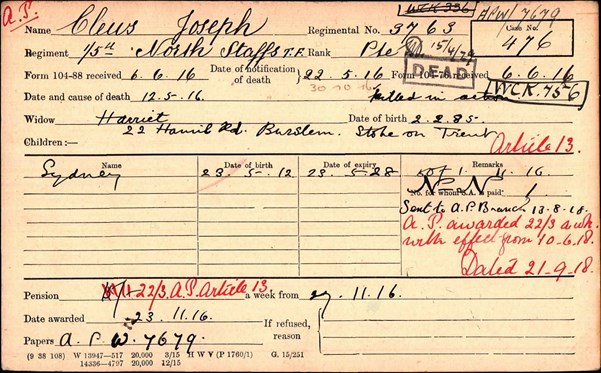 A.P.
WCK 336
APW/7679
Name Clews Joseph Regimental No. 3763
Case No.
476
Regiment 1/5th North Staffs T.F. Rank Pte 15/4/29
DEAD
Form 104-88 received 6.6.16 Date of notification of death 22.5.16 Form 104-76 received 6.6.16
30.10.16
WCK 75-6
Date and cause of death 12.5.16. Killed in action
Widow Harriet Date of birth 2.2.85.
22 Hamil Rd. Burslem. Stoke on Trent
Children:— Article 13.
Name Date of birth Date of expiry Remarks
Sydney 23.5.12 23.5.28 11.16
No. for whom S.A. is paid 1
Sent to A.P. Branch 13-8-18.
A.P. awarded 22/3 a wk.
with effect from 10-6-18.
Dated 21-9-18.
Pension 22/3. A.P. Article 13 a week from 27.11.16.
Date awarded 23.11.16. If refused, reason
Papers A.P.W. 7679.
(9 38 108) W 13947—517 20,000 3/15 H W V (P 1760/1) G. 15/251
14336—4797 20,000 12/15